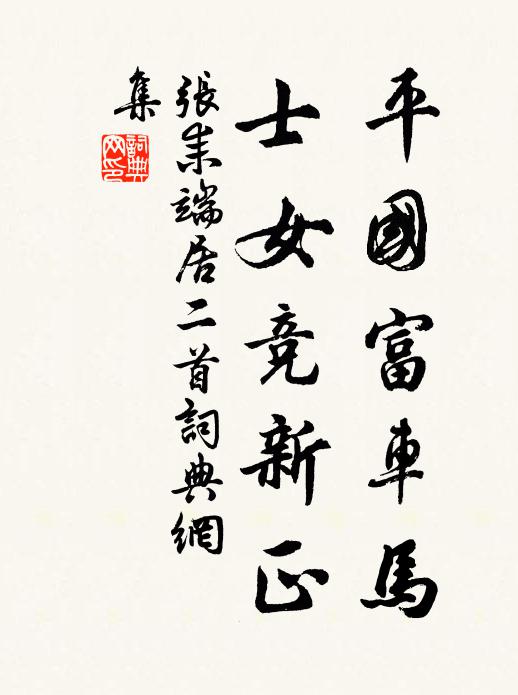 平國富車馬
士女競新正
張耒端居二首詞典網
集
詞典
网印